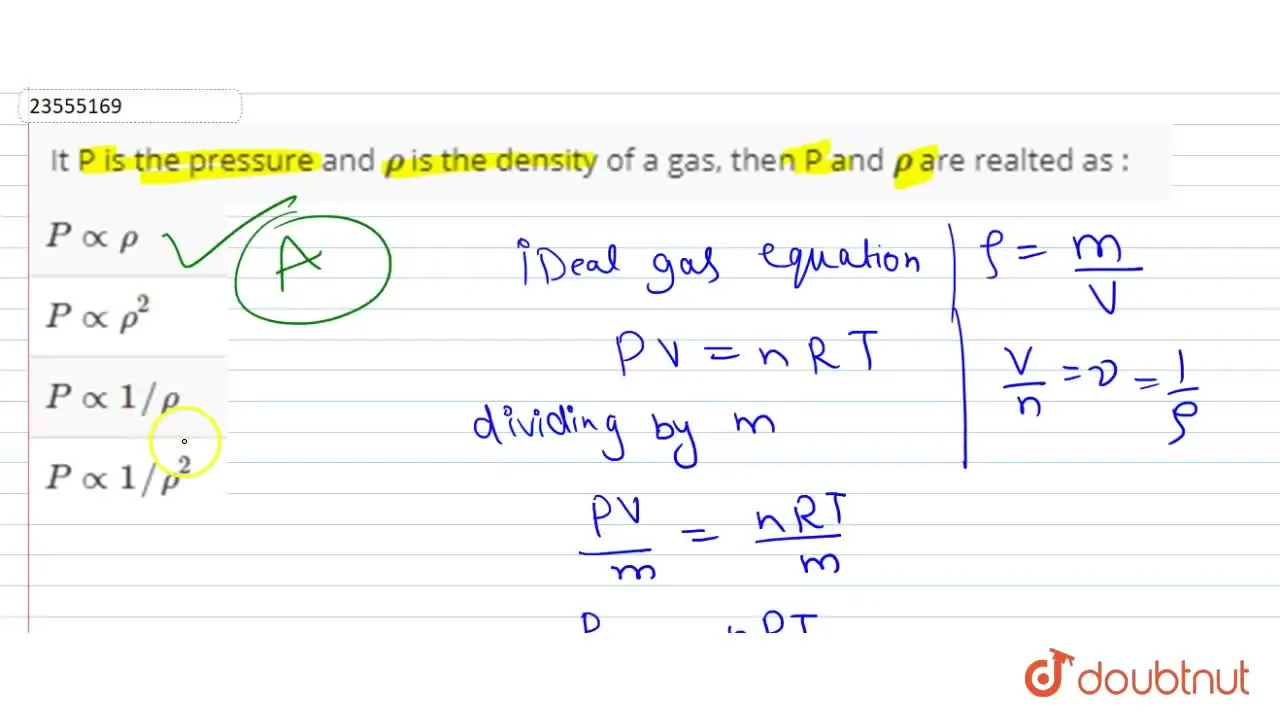 23555169
It P is the pressure and ρ is the density of a gas, then P and ρ are realted as :
P ∝ ρ
A
P ∝ ρ²
P ∝ 1/ρ
P ∝ 1/ρ²
iDeal gas equation
PV = nRT
dividing by m
PV/m = nRT/m
ρ = m/V
V/n = ν = 1/ρ
doubtnut